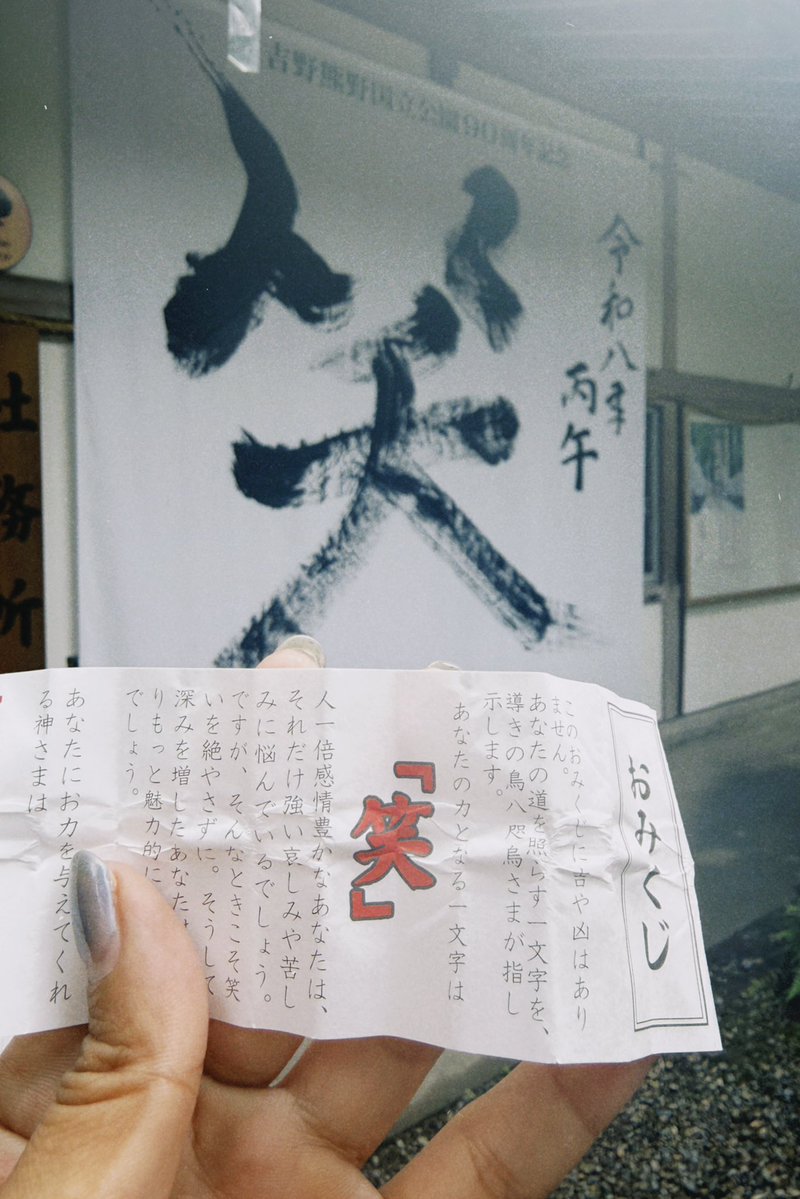 吉野熊野国立公園90周年記念
令和八年
丙午
笑
社務所
おみくじ
このおみくじに吉や凶はあり
ません。
あなたの道を照らす一文字を、
導きの鳥八咫烏さまが指し
示します。
あなたの力となる一文字は
「笑」
人一倍感情豊かなあなたは、
それだけ強い哀しみや苦し
みに悩んでいるでしょう。
ですが、そんなときこそ笑
いを絶やさずに。そうして
深みを増したあなたは
りもっと魅力的に
でしょう。
あなたにお力を与えてくれ
る神さまは